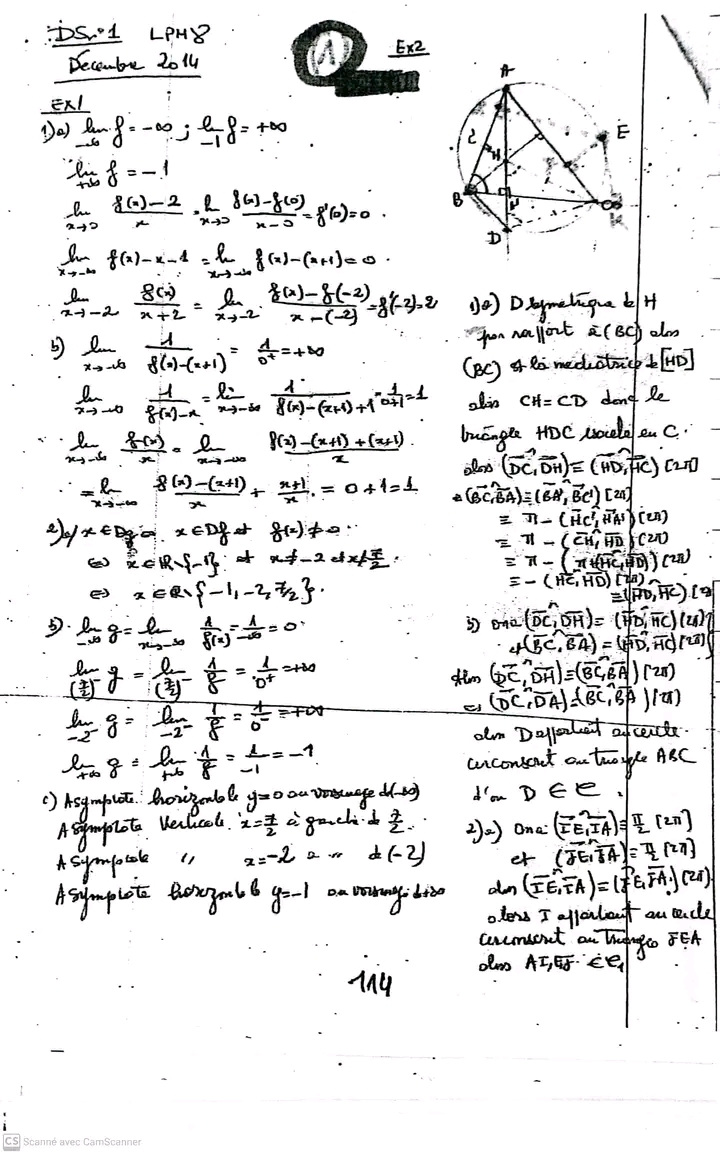 DS n°1 LPH8
Décembre 2014
1
Ex2
EX1
1) a) lim_{-∞} f = -∞ ; lim_{-1} f = +∞
lim_{+∞} f = -1
lim_{x→0} (f(x)-2)/x = lim_{x→0} (f(x)-f(0))/(x-0) = f'(0) = 0.
lim_{x→-∞} f(x)-x-1 = lim_{x→-∞} f(x)-(x+1) = 0.
lim_{x→-2} f(x)/(x+2) = lim_{x→-2} (f(x)-f(-2))/(x-(-2)) = f'(-2) = 2
b) lim_{x→-∞} 1/(f(x)-(x+1)) = 1/0⁺ = +∞
lim_{x→-∞} 1/(f(x)-x) = lim_{x→-∞} 1/(f(x)-(x+1)+1) = 1/(0+1) = 1
lim_{x→-∞} f(x)/x = lim_{x→-∞} (f(x)-(x+1)+(x+1))/x
= lim_{x→-∞} (f(x)-(x+1))/x + (x+1)/x = 0+1 = 1
2) a/ x ∈ Dg ⇔ x ∈ Df et f(x) ≠ 0.
⇔ x ∈ ℝ\{-1} et x ≠ -2 et x ≠ 7/2.
⇔ x ∈ ℝ\{-1, -2, 7/2}.
b) lim_{-∞} g = lim_{x→-∞} 1/f(x) = 1/-∞ = 0
lim_{(7/2)⁻} g = lim_{(7/2)⁻} 1/f = 1/0⁺ = +∞
lim_{-2} g = lim_{-2} 1/f = 1/0 = +∞
lim_{+∞} g = lim_{+∞} 1/f = 1/-1 = -1
c) Asymptote horizontale y=0 au voisinage de (-∞)
Asymptote Verticale x = 7/2 à gauche de 7/2.
Asymptote " x = -2 a " d(-2)
Asymptote horizontale y=-1 au voisinage de +∞
A
E
H
B
D
1) a) D symetrique de H
par rapport à (BC) alors
(BC) est la mediatrice de [HD]
alors CH = CD donc le
triangle HDC isocele en C.
alors (DC, DH) ≡ (HD, HC) [2π]
* (BC, BA) ≡ (BA', BC') [2π]
≡ π - (HC', HA') [2π]
≡ π - (CH, HD) [2π]
≡ π - (π + (HC, HD)) [2π]
≡ - (HC, HD) [2π]
≡ (HD, HC) [2
b) ona (DC, DH) ≡ (HD, HC) [2π]
et (BC, BA) ≡ (HD, HC) [2π]
alors (DC, DH) ≡ (BC, BA) [2π]
⇔ (DC, DA) ≡ (BC, BA) [2π]
alors D appartient au cercle
circonscrit au triangle ABC
d'ou D ∈ 𝒞.
2) a) Ona (IE, IA) ≡ π/2 [2π]
et (JE, JA) ≡ π/2 [2π]
alors (IE, IA) ≡ (JE, JA) [2π]
alors I appartient au cercle
circonscrit au triangle JEA
alors A, I, E, J ∈ 𝒞₁
114
CS Scanné avec CamScanner